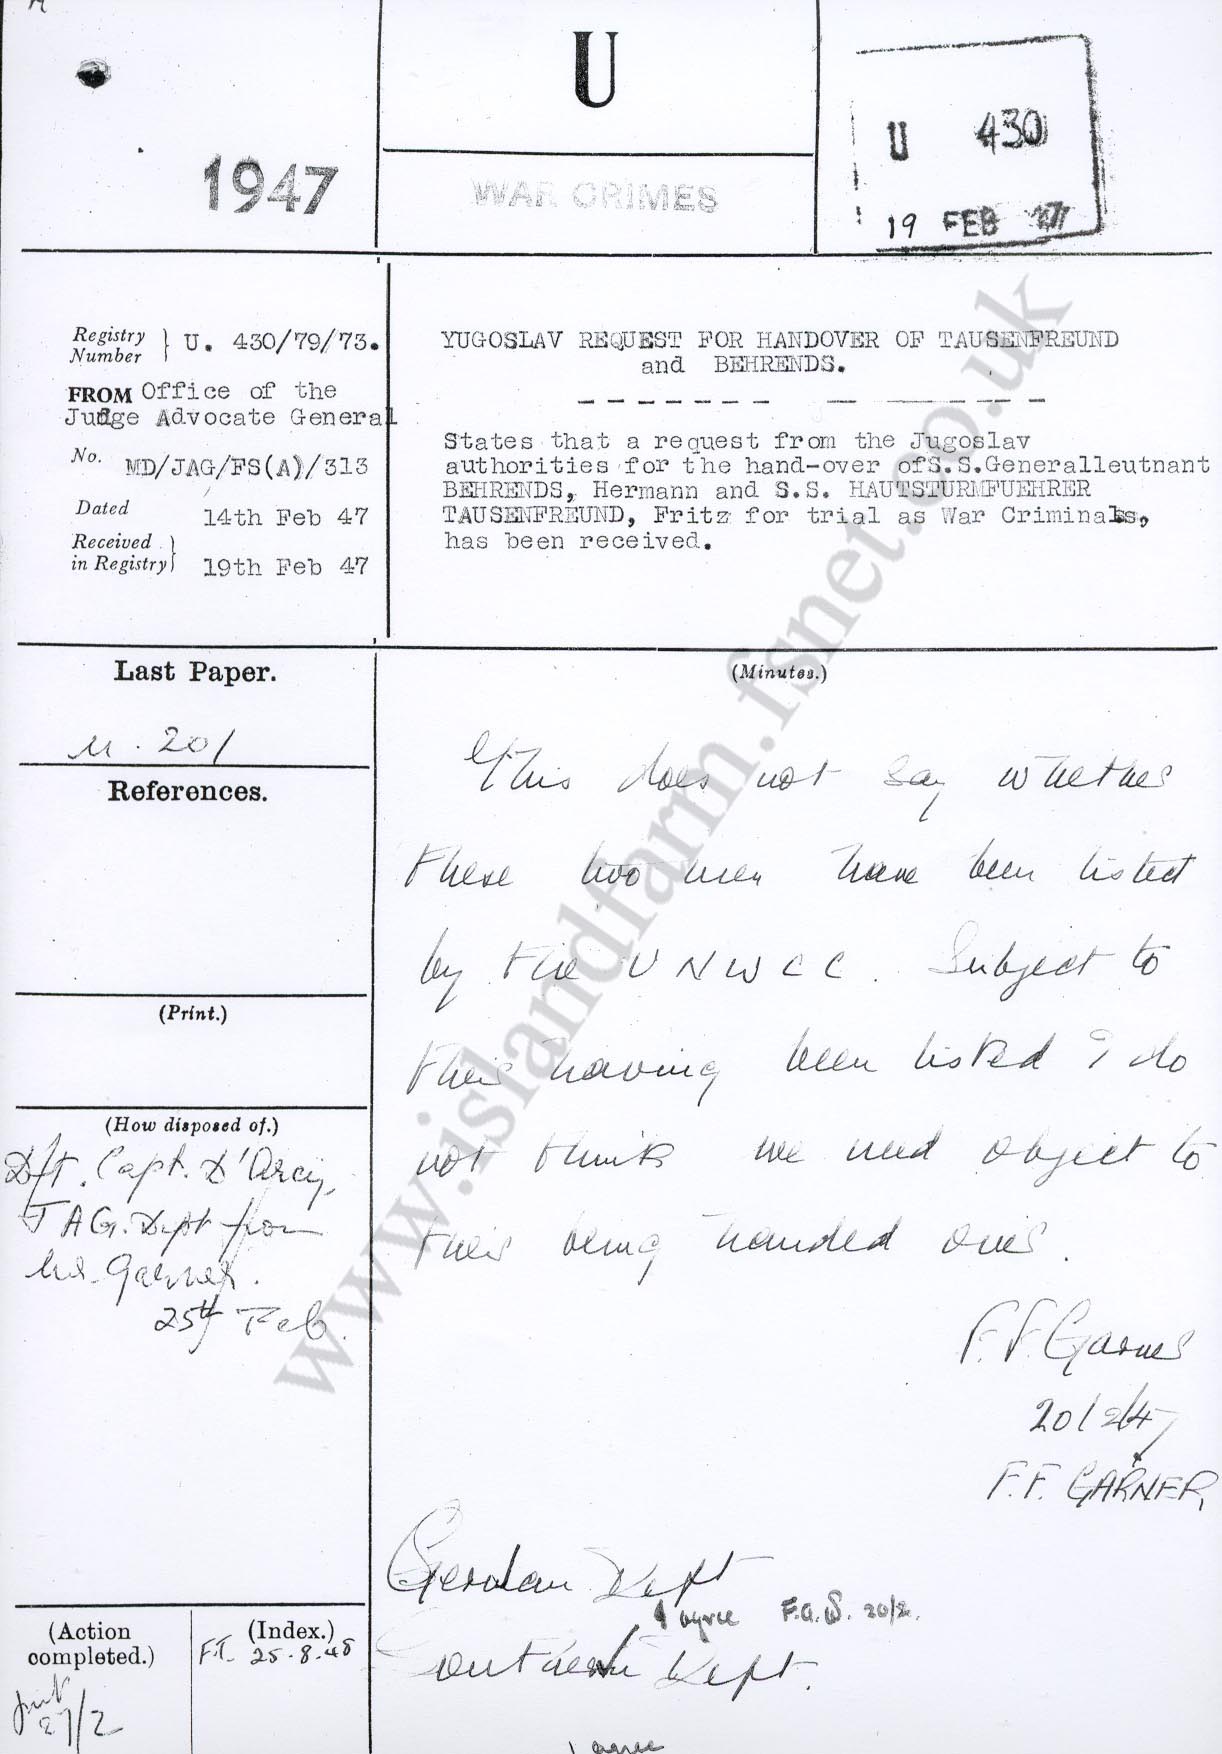 U
1947
WAR CRIMES
U 430
19 FEB 47
Registry Number } U. 430/79/73.
FROM Office of the
Judge Advocate General
No. MD/JAG/FS(A)/313
Dated 14th Feb 47
Received in Registry } 19th Feb 47
YUGOSLAV REQUEST FOR HANDOVER OF TAUSENFREUND
and BEHRENDS.
States that a request from the Jugoslav
authorities for the hand-over of S.S.Generalleutnant
BEHRENDS, Hermann and S.S. HAUTSTURMFUEHRER
TAUSENFREUND, Fritz for trial as War Criminals,
has been received.
Last Paper.
U. 201
References.
(Print.)
(How disposed of.)
Dft. Capt. D'Arcy,
JAG. Dept from
Mr. Garner.
25th Feb.
(Action completed.)
27/2
(Index.)
F.T. 25.8.48
(Minutes.)
This does not say whether
these two men have been listed
by the UNWCC. Subject to
their having been listed I do
not think we need object to
their being handed over.
F.F. Garner
20/2/47
F.F. GARNER,
German Dept
I agree F.G.W. 20/2.
Southern Dept.
I agree
www.islandfarm.fsnet.co.uk